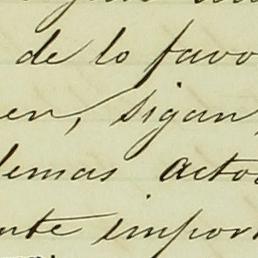 de lo favo
en, sigan,
demas actos
nte impor